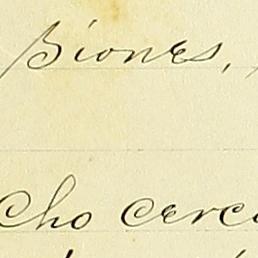 Biones,
Cho cerc